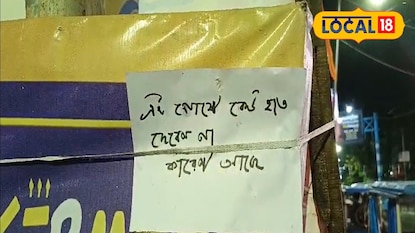 LOCAL 18
এই পোস্টে কেউ হাত
দেবেন না
কারেন্ট আছে